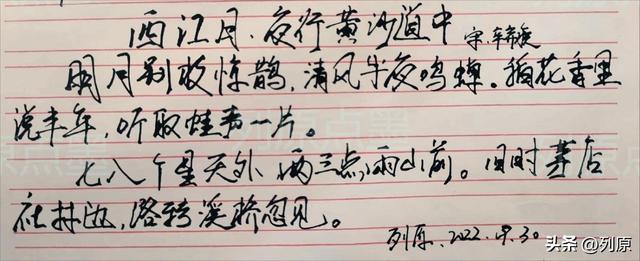 西江月·夜行黄沙道中 宋·辛弃疾
明月别枝惊鹊,清风半夜鸣蝉。稻花香里
说丰年,听取蛙声一片。
七八个星天外,两三点雨山前。旧时茅店
社林边,路转溪桥忽见。
列原.2022.9.30
列原点墨
头条 @列原